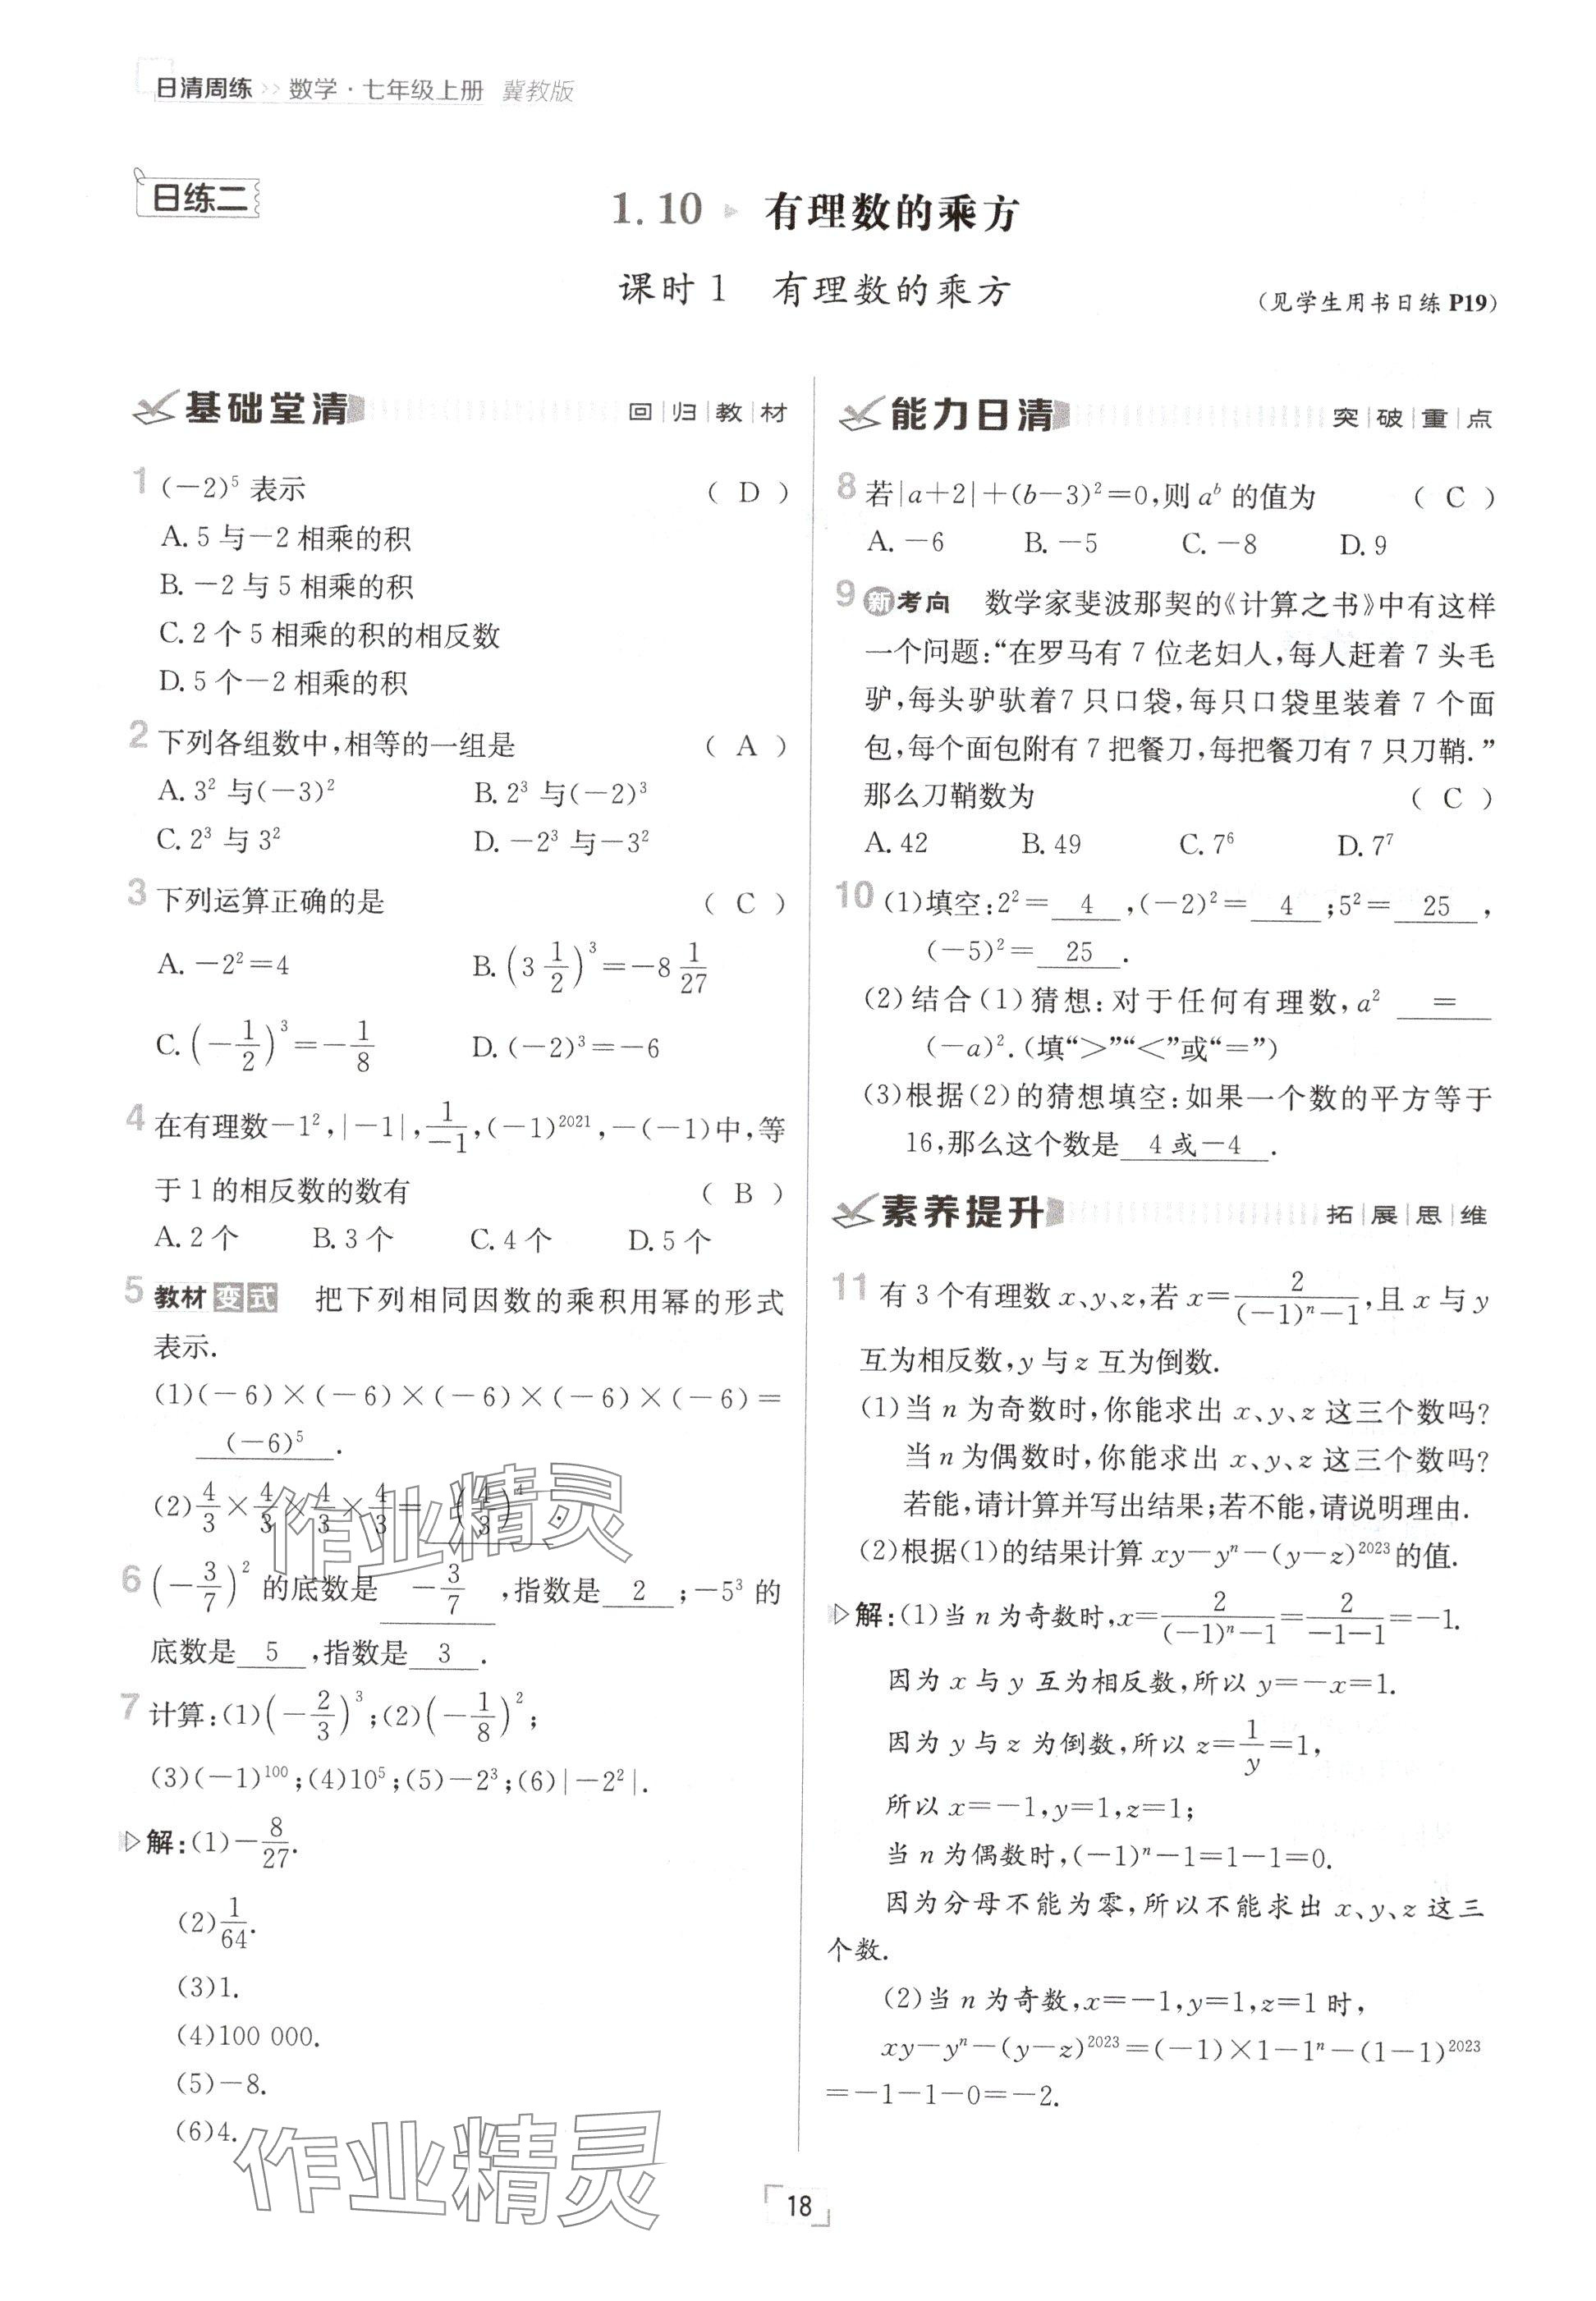 日清周练 >> 数学·七年级上册 冀教版
日练二
1.10 有理数的乘方
课时1 有理数的乘方
(见学生用书日练P19)
基础堂清 回|归|教|材
1 (-2)⁵ 表示 ( D )
A. 5与-2相乘的积
B. -2与5相乘的积
C. 2个5相乘的积的相反数
D. 5个-2相乘的积
2 下列各组数中,相等的一组是 ( A )
A. 3²与(-3)² B. 2³与(-2)³
C. 2³与3² D. -2³与-3²
3 下列运算正确的是 ( C )
A. -2²=4 B. (3 1/2)³=-8 1/27
C. (-1/2)³=-1/8 D. (-2)³=-6
4 在有理数-1²,|-1|,1/-1,(-1)²⁰²¹,-(-1)中,等
于1的相反数的数有 ( B )
A. 2个 B. 3个 C. 4个 D. 5个
5 教材变式 把下列相同因数的乘积用幂的形式
表示.
(1)(-6)×(-6)×(-6)×(-6)×(-6)=
(-6)⁵ .
(2)4/3×4/3×4/3×4/3= (4/3)⁴ .
6 (-3/7)² 的底数是 -3/7 ,指数是 2 ;-5³的
底数是 5 ,指数是 3 .
7 计算:(1)(-2/3)³;(2)(-1/8)²;
(3)(-1)¹⁰⁰;(4)10⁵;(5)-2³;(6)|-2²|.
解:(1)-8/27.
(2)1/64.
(3)1.
(4)100 000.
(5)-8.
(6)4.
能力日清 突|破|重|点
8 若|a+2|+(b-3)²=0,则aᵇ的值为 ( C )
A. -6 B. -5 C. -8 D. 9
9 新考向 数学家斐波那契的《计算之书》中有这样
一个问题:“在罗马有7位老妇人,每人赶着7头毛
驴,每头驴驮着7只口袋,每只口袋里装着7个面
包,每个面包附有7把餐刀,每把餐刀有7只刀鞘.”
那么刀鞘数为 ( C )
A. 42 B. 49 C. 7⁶ D. 7⁷
10 (1)填空:2²= 4 ,(-2)²= 4 ;5²= 25 ,
(-5)²= 25 .
(2)结合(1)猜想:对于任何有理数,a² =
(-a)².(填“>”“<”或“=”)
(3)根据(2)的猜想填空:如果一个数的平方等于
16,那么这个数是 4或-4 .
素养提升 拓|展|思|维
11 有3个有理数x、y、z,若x=2/((-1)ⁿ-1),且x与y
互为相反数,y与z互为倒数.
(1)当n为奇数时,你能求出x、y、z这三个数吗?
当n为偶数时,你能求出x、y、z这三个数吗?
若能,请计算并写出结果;若不能,请说明理由.
(2)根据(1)的结果计算xy-yⁿ-(y-z)²⁰²³的值.
解:(1)当n为奇数时,x=2/((-1)ⁿ-1)=2/(-1-1)=-1.
因为x与y互为相反数,所以y=-x=1.
因为y与z为倒数,所以z=1/y=1,
所以x=-1,y=1,z=1;
当n为偶数时,(-1)ⁿ-1=1-1=0.
因为分母不能为零,所以不能求出x、y、z这三
个数.
(2)当n为奇数,x=-1,y=1,z=1时,
xy-yⁿ-(y-z)²⁰²³=(-1)×1-1ⁿ-(1-1)²⁰²³
=-1-1-0=-2.
作业精灵
作业精灵
18